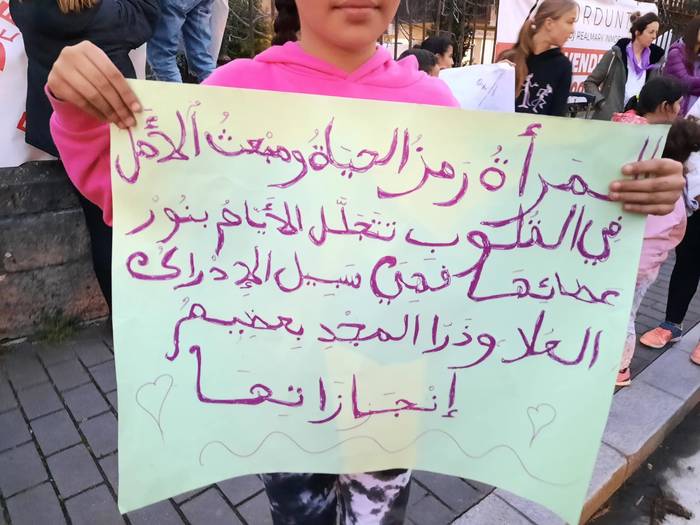 المرأةُ رَمزُ الحَيَاةُ ومَبْعثُ الأمَل
في القُلُوب تتَجلَّل الأيّامُ بنُورْ
عطائهَا فهِيَ سَبِيل الإدْراك
العُلا وذَرَا المَجْدِ بِعَظِيمِ
إنْجَازَاتهَا
ORDUNT
REALMARY INMO
VENDE